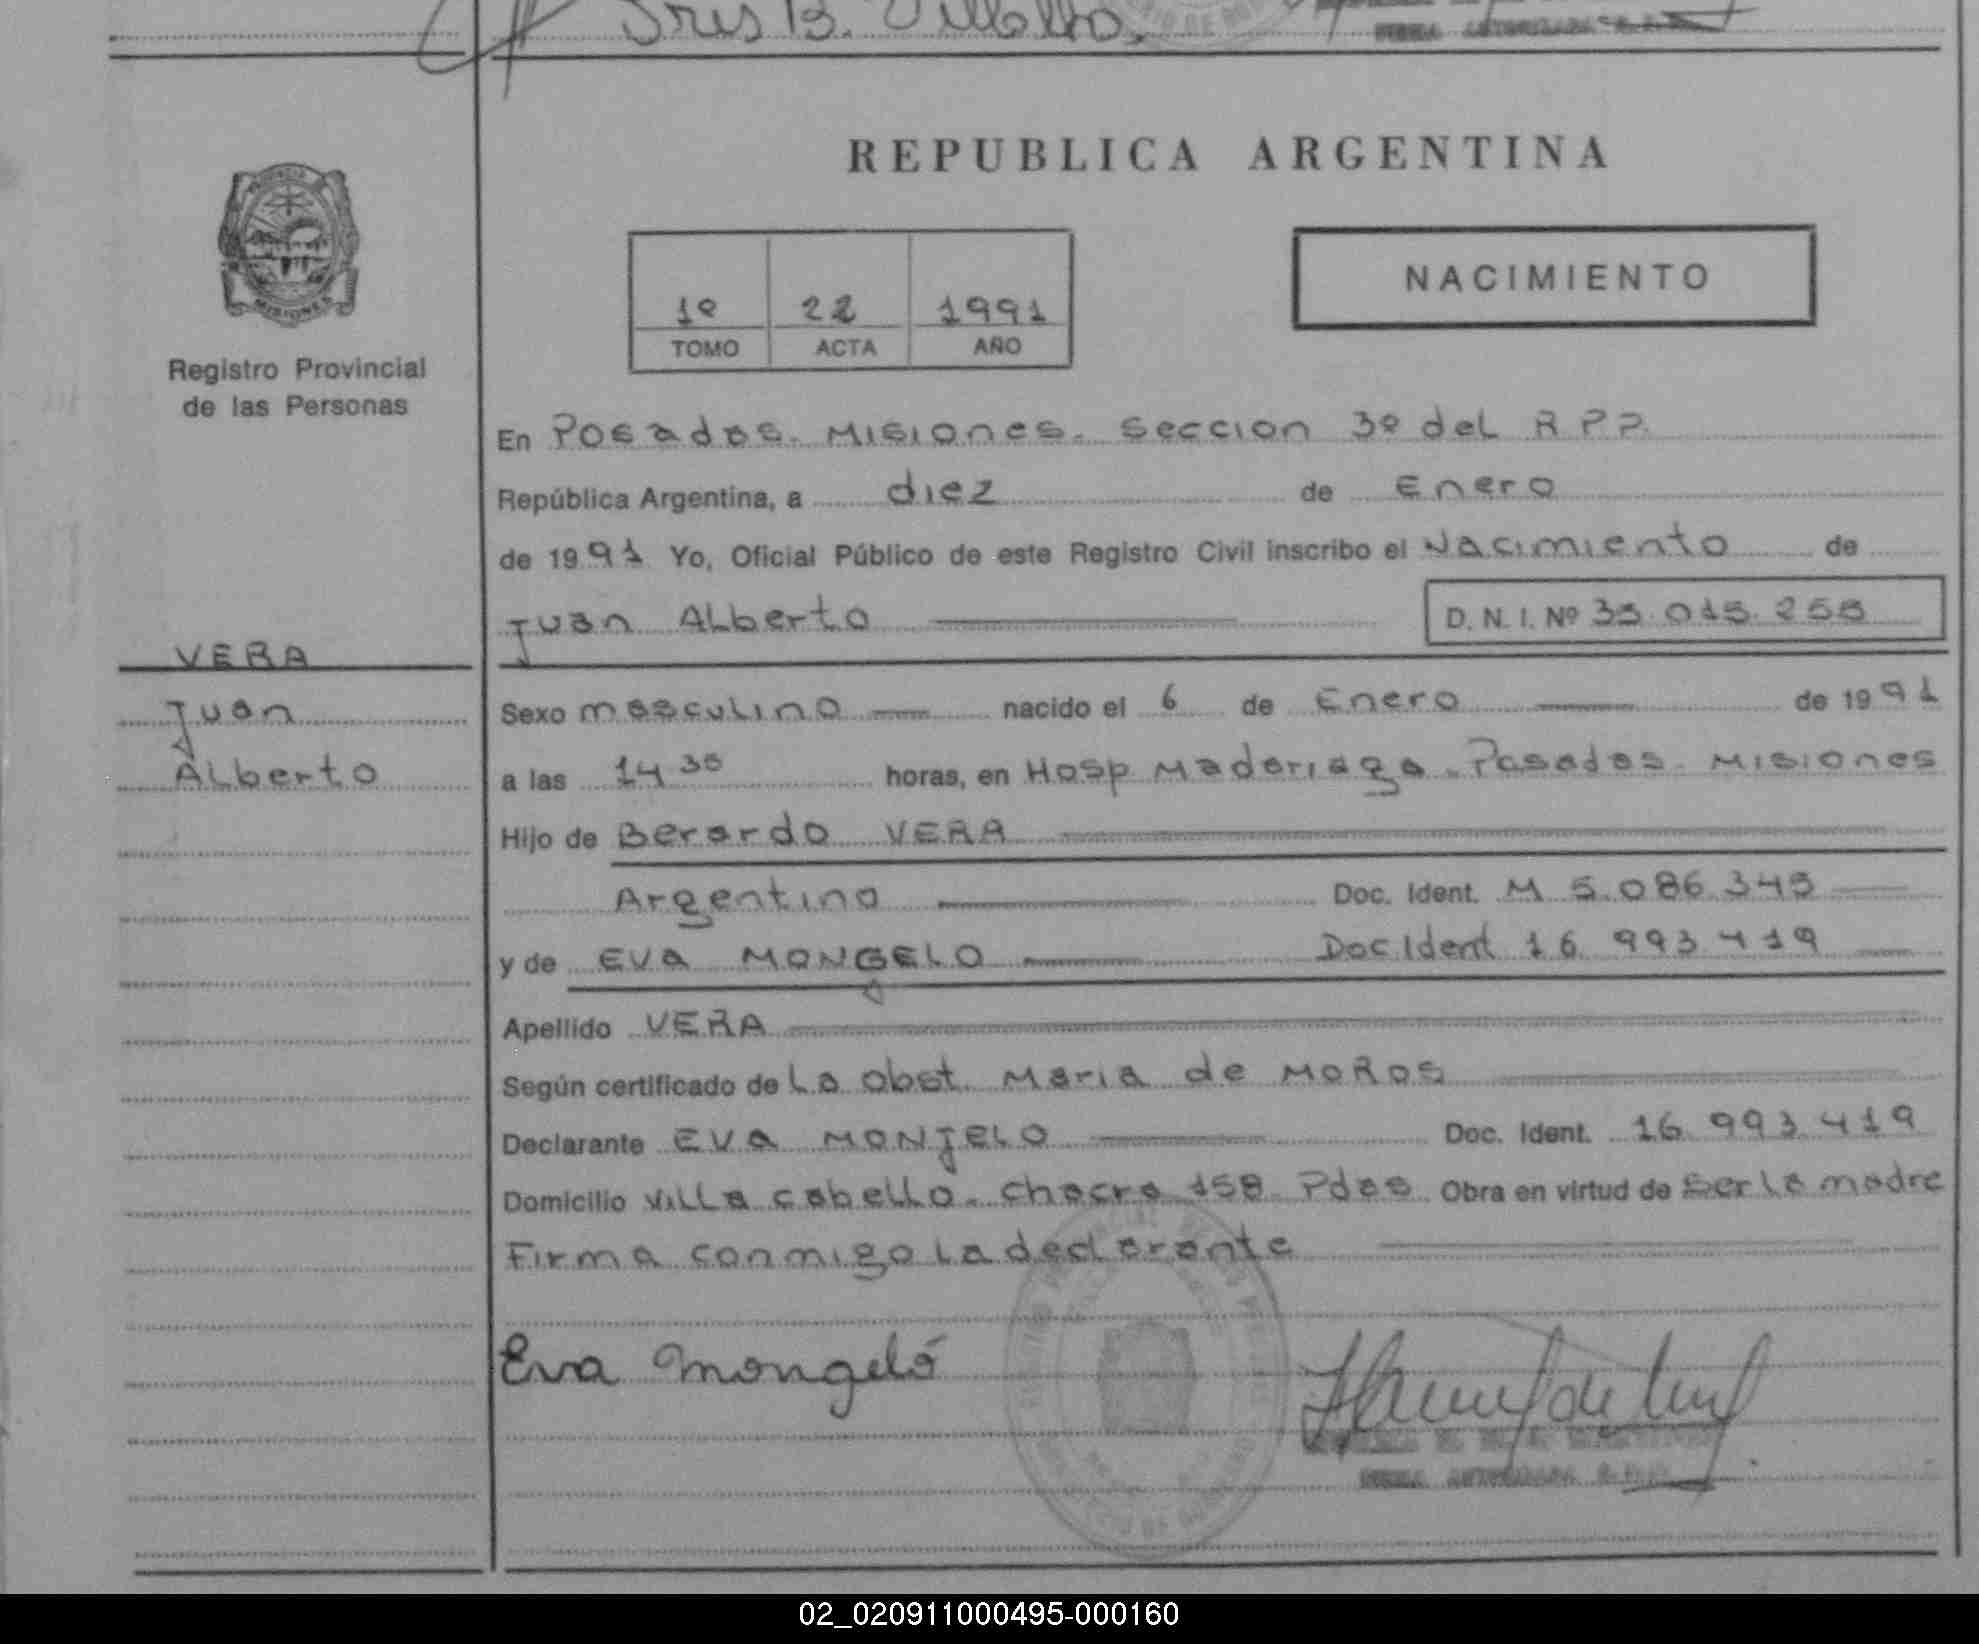 Iris B. Villalba.
REPUBLICA ARGENTINA
NACIMIENTO
1º 22 1991
TOMO ACTA AÑO
Registro Provincial
de las Personas
En Posadas. Misiones. Seccion 3º del R P P.
República Argentina, a diez de Enero
de 1991 Yo, Oficial Público de este Registro Civil inscribo el Nacimiento de
Juan Alberto D. N. I. Nº 35.015.255
VERA
Juan
Alberto
Sexo masculino nacido el 6 de Enero de 1991
a las 14 35 horas, en Hosp Madariaga. Posadas. Misiones
Hijo de Berardo VERA
Argentino Doc. Ident. M 5.086.345
y de EVA MONGELO Doc. Ident 16.993.419
Apellido VERA
Según certificado de La obst. Maria de MOROS
Declarante EVA MONJELO Doc. Ident. 16.993.419
Domicilio Villa cabello. chacra 158 Pdas Obra en virtud de ser la madre
Firma conmigo la declarante
Eva Mongeló
02_020911000495-000160